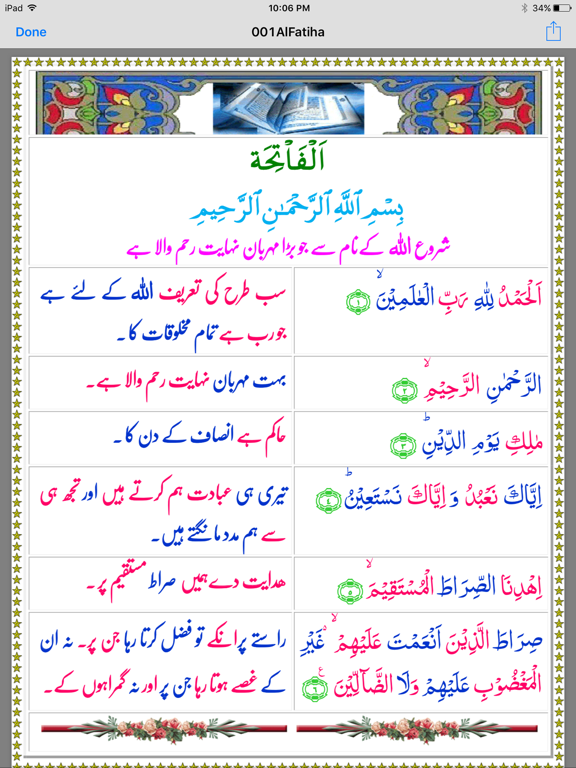 iPad 10:06 PM 34%
Done 001AlFatiha
اَلْفَاْتِحَة
بِسْمِ ٱللَّهِ ٱلرَّحْمَـٰنِ ٱلرَّحِيمِ
شروع اللہ کے نام سے جو بڑا مہربان نہایت رحم والا ہے
اَلْحَمْدُ لِلّٰهِ رَبِّ الْعٰلَمِيْنَ ۙ ﴿١﴾
سب طرح کی تعریف اللہ کے لئے ہے
جو رب ہے تمام مخلوقات کا۔
الرَّحْمٰنِ الرَّحِيْمِ ۙ ﴿٢﴾
بہت مہربان نہایت رحم والا ہے۔
مٰلِكِ يَوْمِ الدِّيْنِ ؕ ﴿٣﴾
حاکم ہے انصاف کے دن کا۔
اِيَّاكَ نَعْبُدُ وَ اِيَّاكَ نَسْتَعِيْنُ ؕ ﴿٤﴾
تیری ہی عبادت ہم کرتے ہیں اور تجھ ہی
سے ہم مدد مانگتے ہیں۔
اِهْدِنَا الصِّرَاطَ الْمُسْتَقِيْمَ ۙ ﴿٥﴾
ھدایت دے ہمیں صراط مستقیم پر۔
صِرَاطَ الَّذِيْنَ اَنْعَمْتَ عَلَيْهِمْ ۙ غَيْرِ
الْمَغْضُوْبِ عَلَيْهِمْ وَلَا الضَّآلِّيْنَ ﴿٦﴾
راستے پر انکے تو فضل کرتا رہا جن پر۔ نہ ان
کے غصے ہوتا رہا جن پر اور نہ گمراہوں کے۔